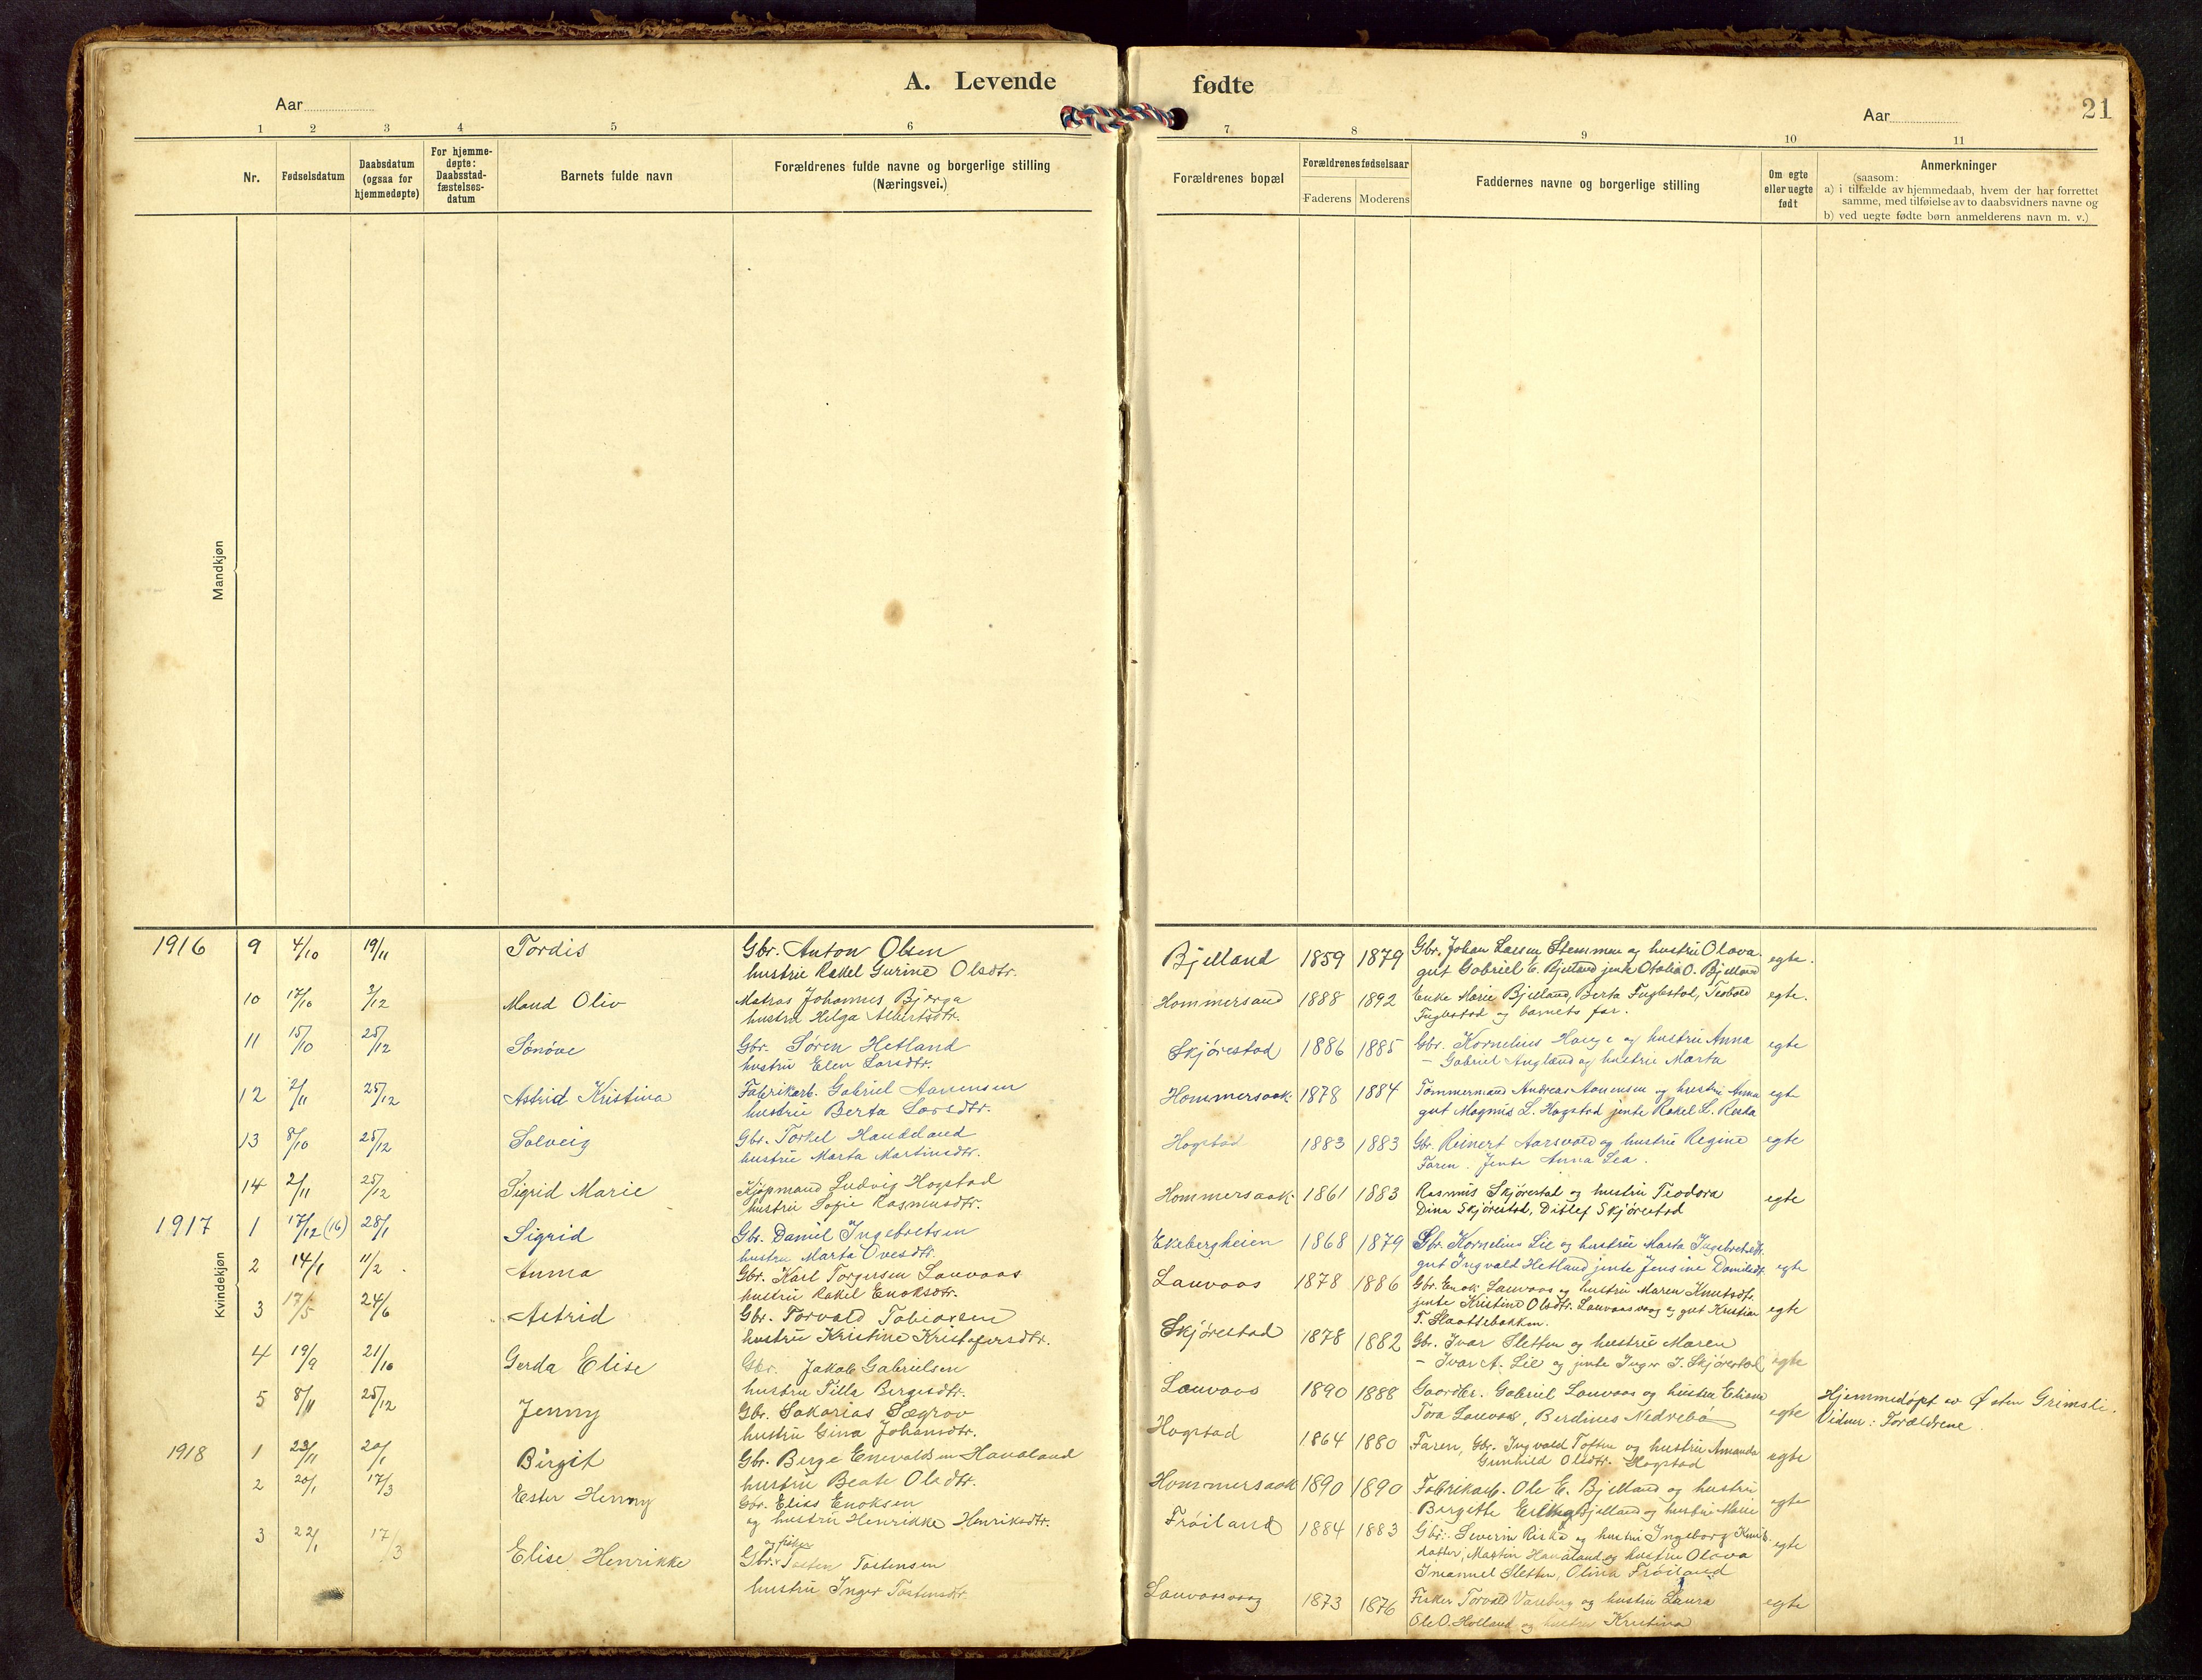 A. Levende fødte
21
Aar
Aar
1 2 3 4 5 6 7 8 9 10 11
Nr.
Fødselsdatum
Daabsdatum
(ogsaa for
hjemmedøpte)
For hjemme-
døpte:
Daabsstad-
fæstelses-
datum
Barnets fulde navn
Forældrenes fulde navne og borgerlige stilling
(Næringsvei.)
Forældrenes bopæl
Forældrenes fødselsaar
Faderens Moderens
Faddernes navne og borgerlige stilling
Om egte
eller uegte
født
Anmerkninger
(saasom:
a) i tilfælde av hjemmedaab, hvem der har forrettet
samme, med tilføielse av to daabsvidners navne og
b) ved uegte fødte børn anmelderens navn m. v.)
Mandkjøn
Kvindekjøn
1916 9 4/10 19/11 Tordis Gbr. Anton Olsen
hustru Rakel Gurine Olsdtr.
Bjelland 1859 1879 Gbr. Johan Larsen Stemmen og hustru Olava egte.
gut Gabriel E. Bjelland jente Otalia O. Bjelland
10 17/10 3/12 Maud Oliv Matros Johannes Bjørga
hustru Helga Albertsdtr.
Hommersand 1888 1892 Enke Marie Bjelland, Berta Fuglestad, Teobold egte.
Fuglestad og barnets far.
11 15/10 25/12 Sønøve Gbr. Søren Hetland
hustru Elen Larsdtr.
Skjørestad 1886 1885 Gbr. Kornelius Hauge og hustru Anna egte
– Gabriel Augland og hustru Marta
12 2/11 25/12 Astrid Kristina Fabrikarb. Gabriel Aanensen
hustru Berta Larsdtr.
Hommersaak 1878 1884 Tømmermand Andreas Aanensen og hustru Anna egte
gut Magnus L. Hogstad jente Rakel L. Reda
13 8/10 25/12 Solveig Gbr. Torkel Haukeland
hustru Marta Martinsdtr.
Hogstad 1883 1883 Gbr. Reinert Aarsvold og hustru Regine egte
Faren. Jente Anna Lea.
14 2/11 25/12 Sigrid Marie Kjøpmand Ludvig Hogstad
hustru Sofie Rasmusdtr.
Hommersaak 1861 1883 Rasmus Skjørestad og hustru Teodora egte
Dina Skjørestad, Ditlef Skjørestad
1917 1 17/12 (16) 28/1 Sigrid Gbr. Daniel Ingebretsen
hustru Marta Ovesdtr.
Ekebergheien 1868 1879 Gbr. Kornelius Lie og hustru Marta Ingebretsdtr.
gut Ingvald Hetland jente Jensine Danielsdtr. egte
2 14/1 11/2 Anna Gbr. Karl Torgersen Lauvaas
hustru Rakel Enoksdtr.
Lauvaas 1878 1886 Gbr. Enok Lauvaas og hustru Maren Knutsdtr. egte
jente Kristine Olsdtr. Lauvaasvaag og gut Kristian
T. Slaattebakken.
3 17/5 24/6 Astrid Gbr. Torvald Tobiassen
hustru Kristine Kristofersdtr.
Skjørestad 1878 1882 Gbr. Ivar Sletten og hustru Maren
– Ivar A. Lie og jente Inger I. Skjørestad egte
4 19/9 21/10 Gerda Elise Gbr. Jakob Gabrielsen
hustru Tilla Bergesdtr.
Lauvaas 1890 1888 Gaardbr. Gabriel Lauvaas og hustru Elisene
Tora Lauvaas, Berdines Nedrebø egte
Hjemmedøpt av Østen Grimsli.
Vidner: Forældrene.
5 8/11 25/12 Jenny Gbr. Sakarias Sægrov
hustru Gina Johansdtr.
Hogstad 1864 1880 Faren, Gbr. Ingvald Toften og hustru Amanda egte
Gunhild Olsdtr. Hogstad
1918 1 23/11 20/1 Birgit Gbr. Berge Enevaldsen Haualand
hustru Beate Olsdtr.
Hommersaak 1890 1890 Fabrikarb. Ole E. Bjelland og hustru
Bergette Erling Bjelland og hustru Marie egte
2 20/1 17/3 Ester Henny Gbr. Elias Enoksen
og hustru Henrikke Henriksdtr.
Frøiland 1884 1883 Gbr. Severin Riska og hustru Ingeborg
datter, Martin Haualand og hustru Olava egte
Imanuel Sletten, Olina Frøiland
3 22/1 17/3 Elise Henrikke og fisker
Gbr. Tosten Tostensen
hustru Inger Tostensdtr.
Lauvaasvaag 1873 1876 Fisker Torvald Vareberg og hustru Laura egte
Ole O. Holland og hustru Kristina